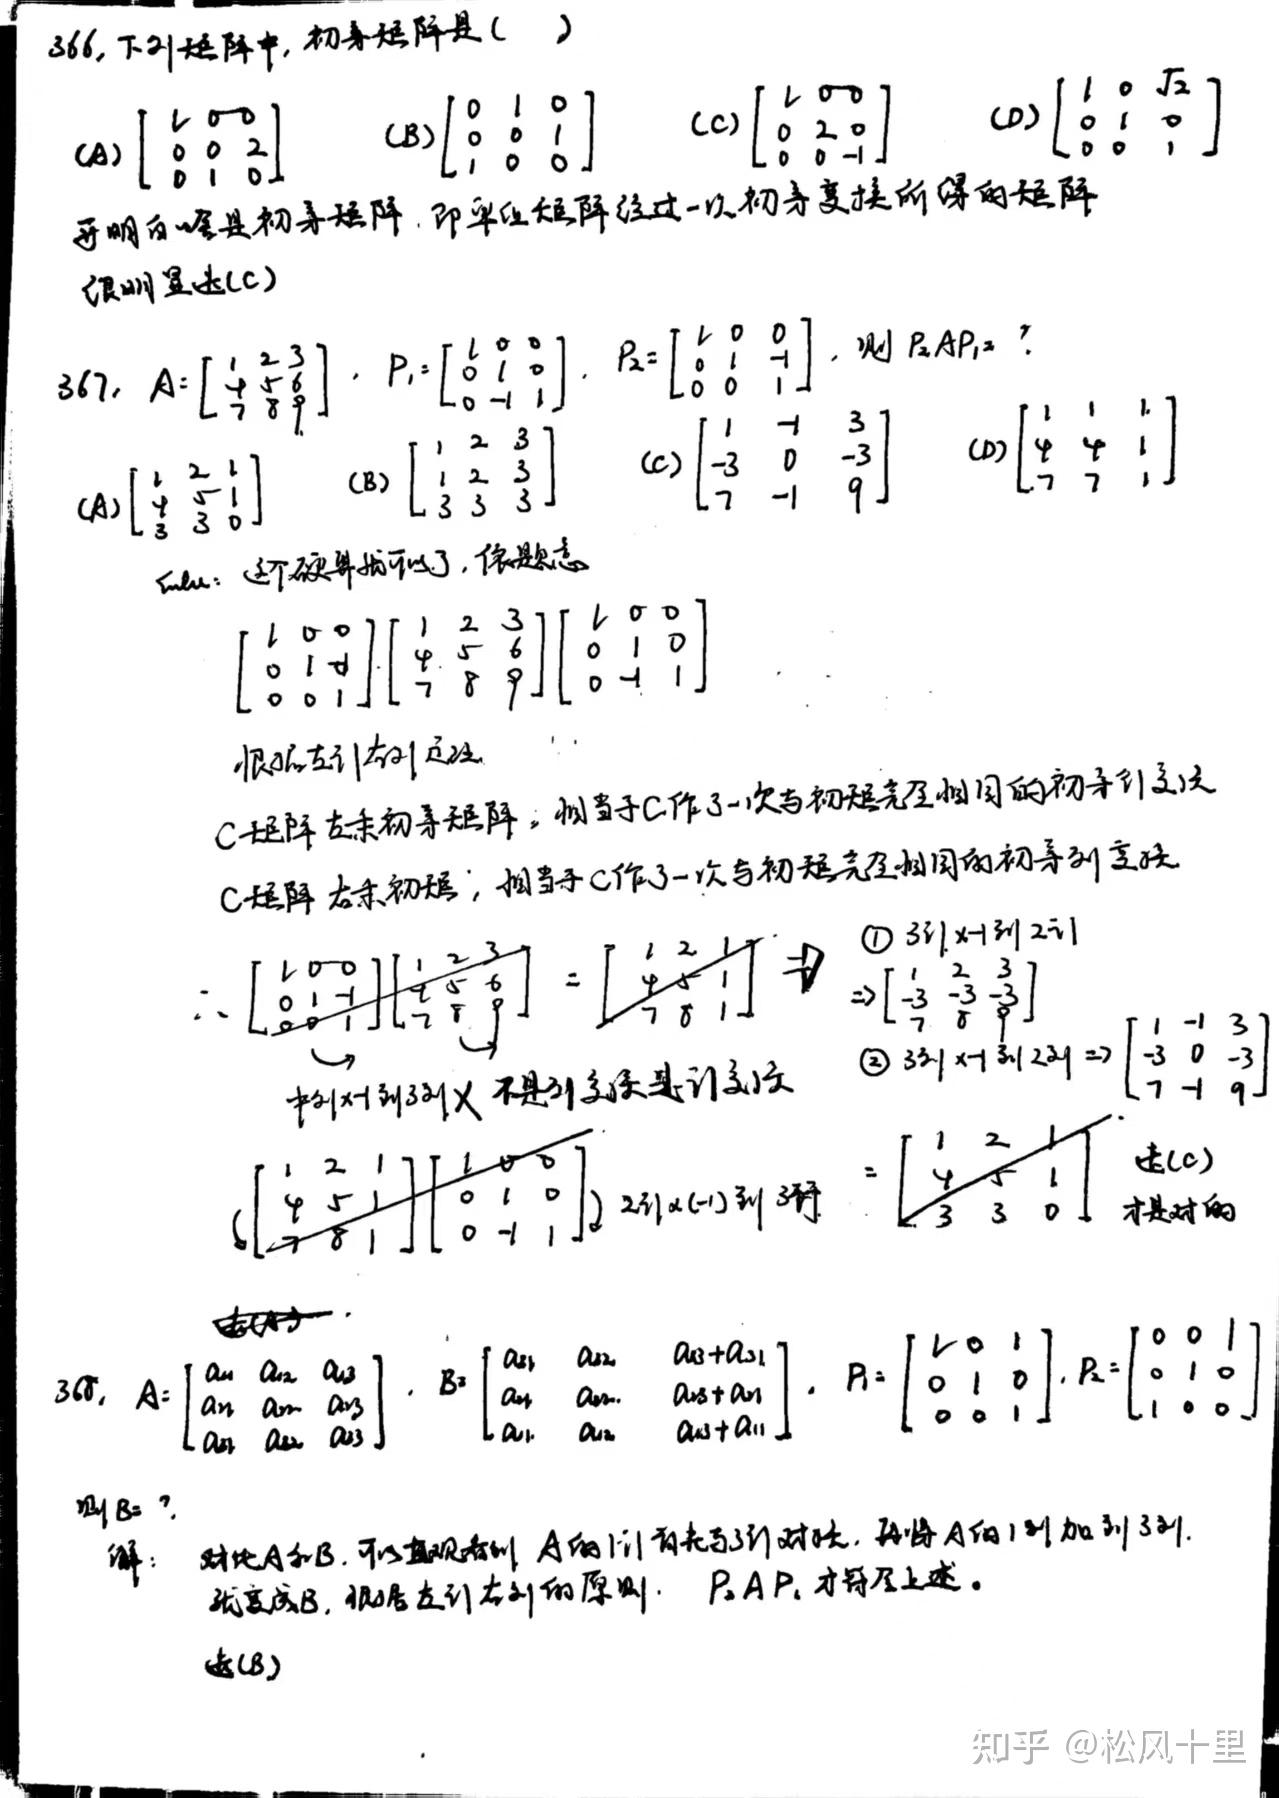 366, 下列矩阵中, 初等矩阵是( )
(A) [1 0 0; 0 0 2; 0 1 0] (B) [0 1 0; 0 0 1; 1 0 0] (C) [1 0 0; 0 2 0; 0 0 -1] (D) [1 0 √2; 0 1 0; 0 0 1]
弄明白啥是初等矩阵. 即单位矩阵经过一次初等变换所得的矩阵
很明显选(C)
367, A=[1 2 3; 4 5 6; 7 8 9], P₁=[1 0 0; 0 1 0; 0 -1 1], P₂=[1 0 0; 0 1 -1; 0 0 1], 则 P₂AP₁=?
(A) [1 2 1; 4 5 1; 3 3 0] (B) [1 2 3; 1 2 3; 3 3 3] (C) [1 -1 3; -3 0 -3; 7 -1 9] (D) [1 1 1; 4 4 1; 7 7 1]
这个硬算就可以了, 依题意
[1 0 0; 0 1 -1; 0 0 1]·[1 2 3; 4 5 6; 7 8 9][1 0 0; 0 1 0; 0 -1 1]
根据左行右列定理
C矩阵左乘初等矩阵; 相当于C作了一次与初矩完全相同的初等行变换
C矩阵右乘初矩; 相当于C作了一次与初矩完全相同的初等列变换
∴ [1 0 0; 0 1 -1; 0 0 1][1 2 3; 4 5 6; 7 8 9] = [1 2 1; 4 5 1; 7 8 1] ⇒
① 3行x-1到2行
⇒ [1 2 3; -3 -3 -3; 7 8 9]
② 3列x-1到2列 ⇒ [1 -1 3; -3 0 -3; 7 -1 9]
中列x-1到3列X 不是列变换是行变换
[1 2 1; 4 5 1; 7 8 1][1 0 0; 0 1 0; 0 -1 1] 2行x(-1)到3行 = [1 2 1; 4 5 1; 3 3 0] 选(C)
才是对的
选(A)
368, A=[a₁₁ a₁₂ a₁₃; a₂₁ a₂₂ a₂₃; a₃₁ a₃₂ a₃₃], B=[a₃₁ a₃₂ a₃₃+a₃₁; a₂₁ a₂₂ a₂₃+a₂₁; a₁₁ a₁₂ a₁₃+a₁₁], P₁=[1 0 1; 0 1 0; 0 0 1], P₂=[0 0 1; 0 1 0; 1 0 0]
则B=?
解: 对比A和B, 可以直观看到 A的1行首先与3行对换, 再将A的1列加到3列.
就变成B, 根据左行右列的原则. P₂AP₁才符合上述。
选(B)
知乎 @松风十里